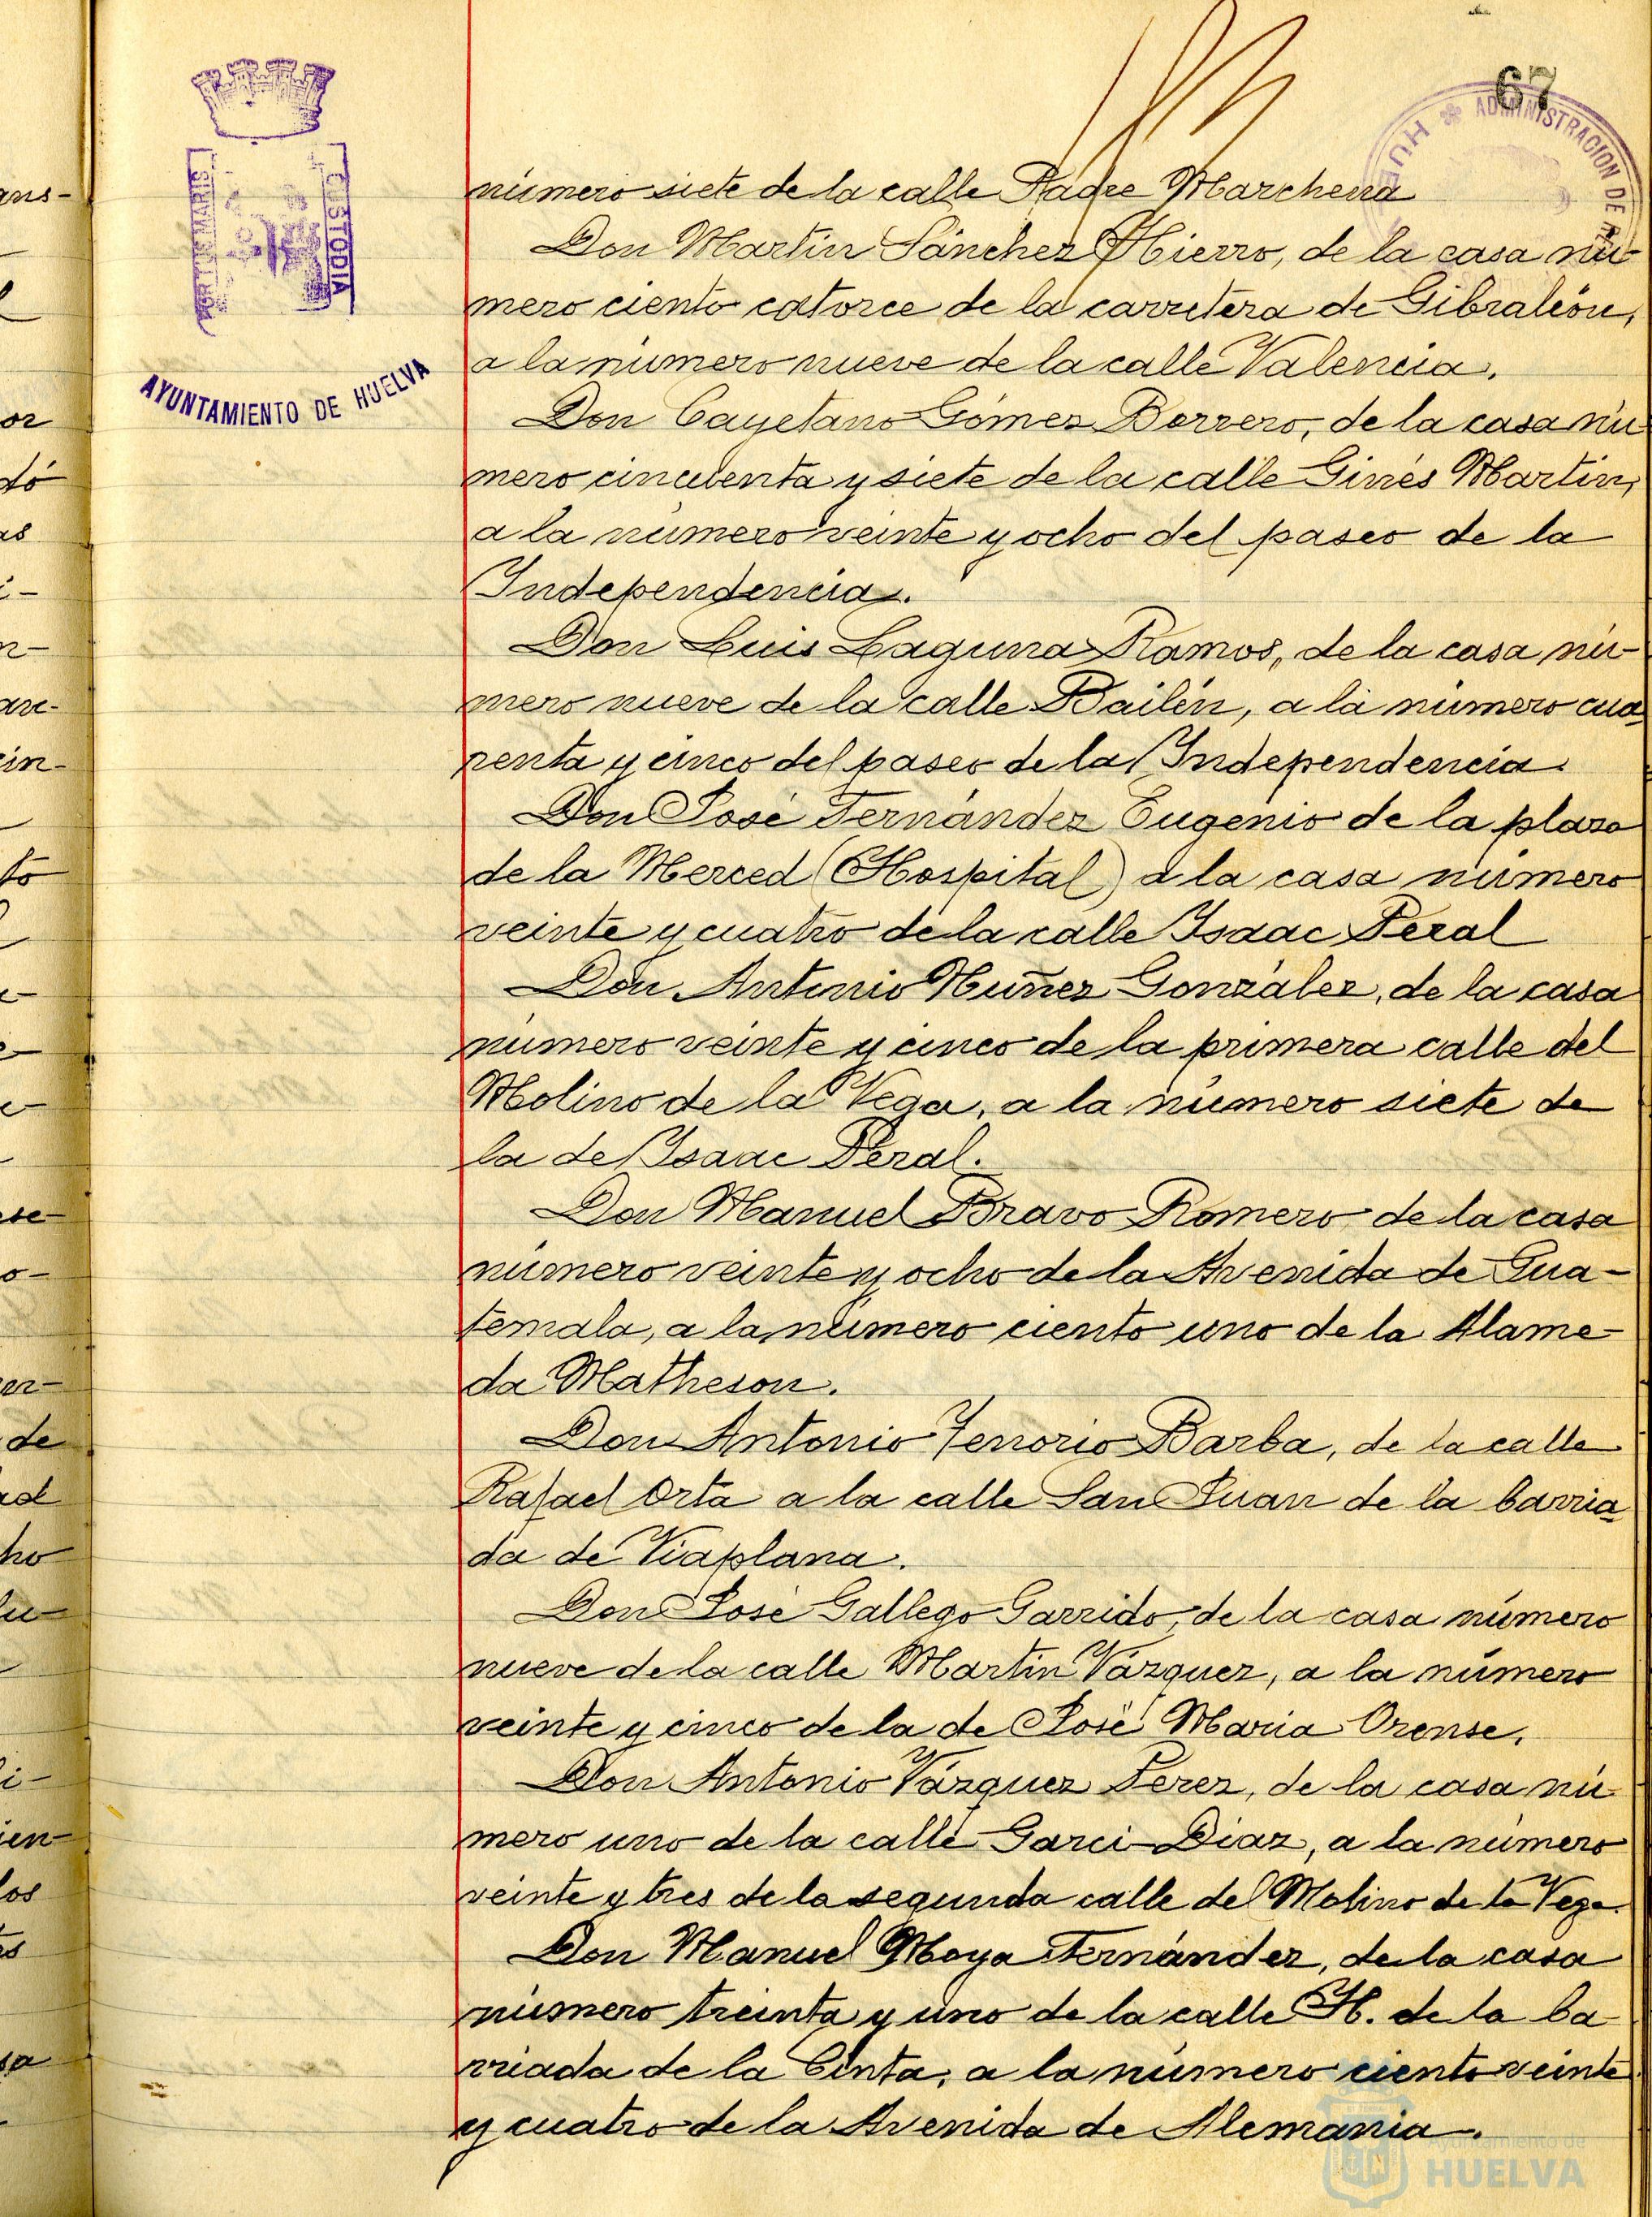 67
ADMINISTRACION DE R
HUE
PORTUS MARIS
CUSTODIA
AYUNTAMIENTO DE HUELVA
número siete de la calle Padre Marchena
Don Martin Sánchez Hierro, de la casa nú-
mero ciento catorce de la carretera de Gibraleón,
a la número nueve de la calle Valencia.
Don Cayetano Gómez Borrero, de la casa nú
mero cincuenta y siete de la calle Ginés Martin,
a la número veinte y ocho del paseo de la
Independencia.
Don Luis Laguna Ramos, de la casa nú-
mero nueve de la calle Bailén, a la número cua
renta y cinco del paseo de la Independencia.
Don José Fernández Eugenio de la plaza
de la Merced (Hospital) a la casa número
veinte y cuatro de la calle Isaac Peral
Don Antonio Nuñez González, de la casa
número veinte y cinco de la primera calle del
Molino de la Vega, a la número siete de
la de Isaac Peral.
Don Manuel Bravo Romero de la casa
número veinte y ocho de la Avenida de Gua-
temala, a la número ciento uno de la Alame-
da Matheson.
Don Antonio Tenorio Barba, de la calle
Rafael Orta a la calle San Juan de la barria
da de Viaplana.
Don José Gallego Garrido, de la casa número
nueve de la calle Martín Vázquez, a la número
veinte y cinco de la de José Maria Orense.
Don Antonio Vázquez Perez, de la casa nú
mero uno de la calle Garci-Diaz, a la número
veinte y tres de la segunda calle del Molino de la Vega.
Don Manuel Moya Fernández, de la casa
número treinta y uno de la calle H. de la ba
rriada de la Cinta, a la número ciento veinte
y cuatro de la Avenida de Alemania.
Ayuntamiento de
HUELVA